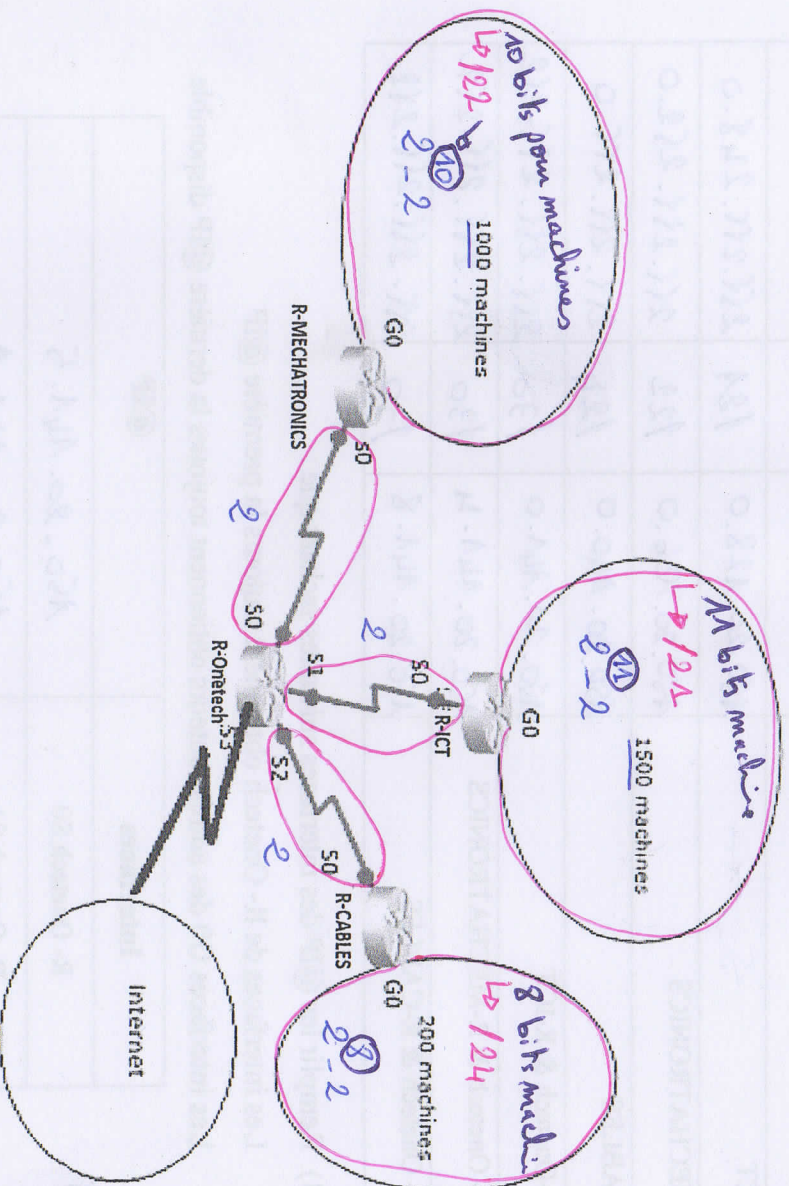 10 bits pour machines
↳ /22
2^10 - 2
1000 machines
G0
R-MECHATRONICS
S0
2
S0
R-Onetech
S3
S1
2
S0
R-ICT
G0
11 bits machine
↳ /21
2^11 - 2
1500 machines
S2
2
S0
R-CABLES
G0
8 bits machin
↳ /24
2^8 - 2
200 machines
Internet